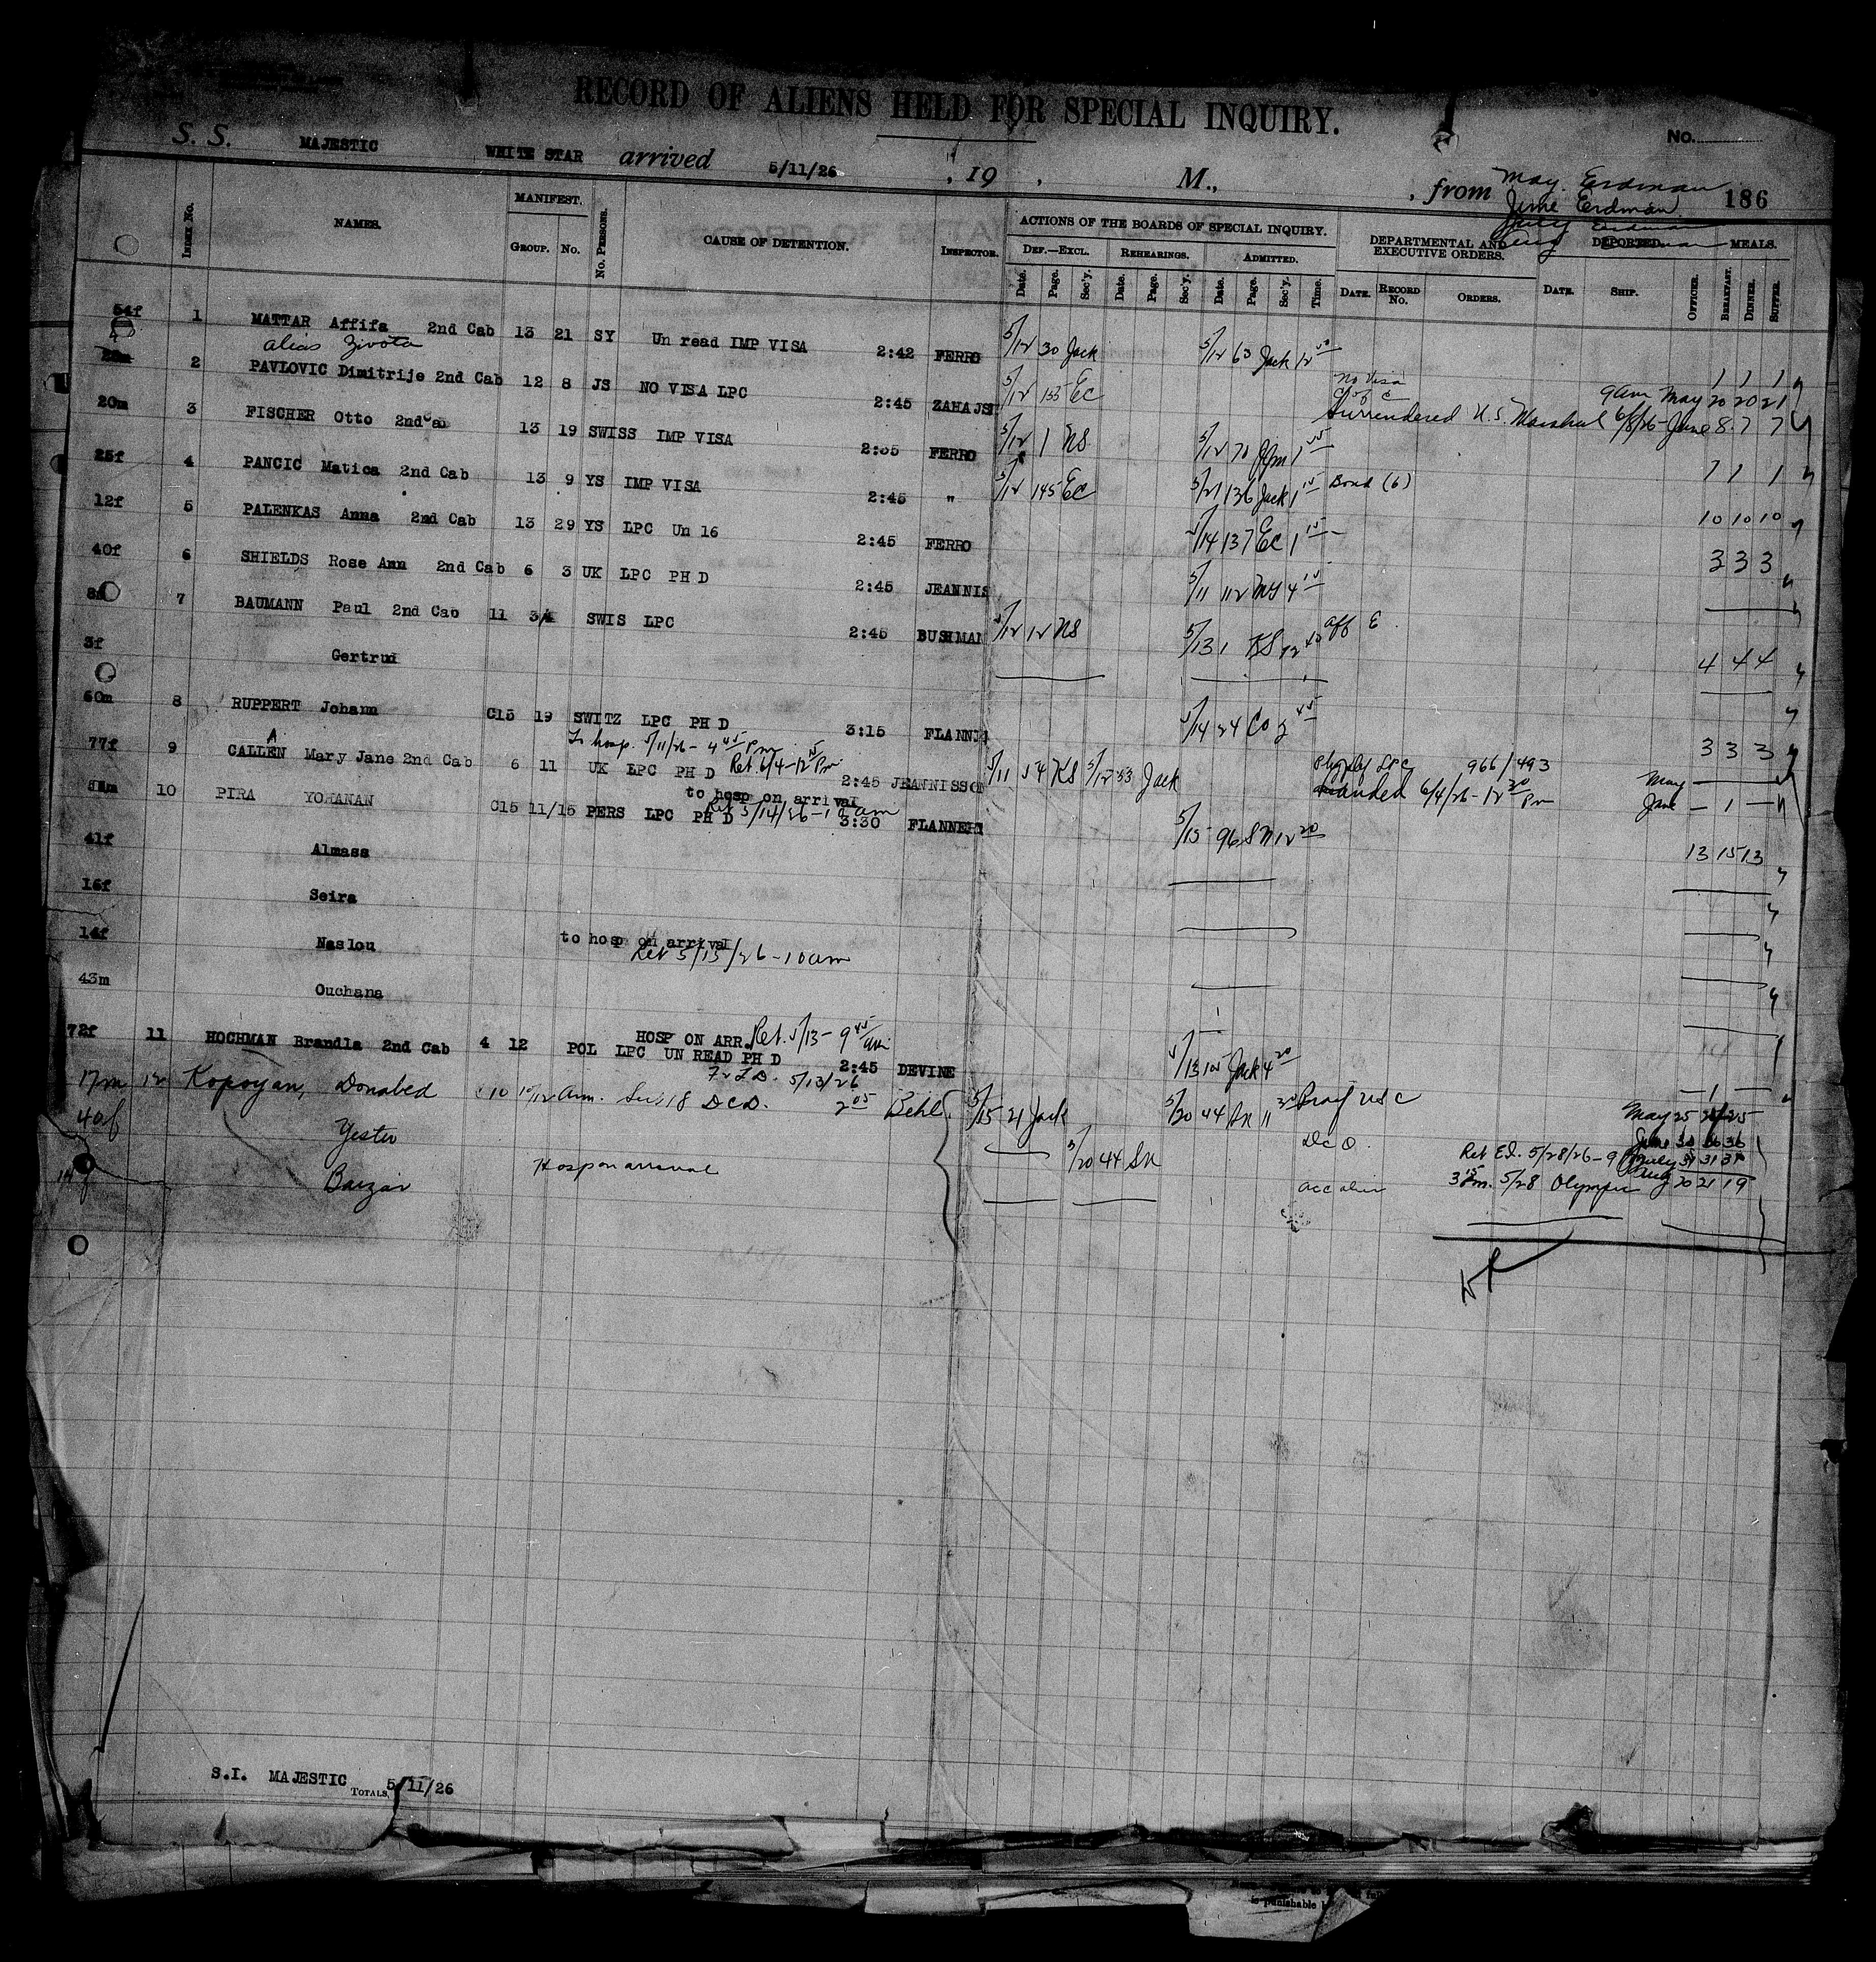 RECORD OF ALIENS HELD FOR SPECIAL INQUIRY.
No.
S. S. MAJESTIC WHITE STAR arrived 5/11/26 , 19 , M., , from May. Erdman 186
June Erdman
July Erdman
Aug
Index No. NAMES. MANIFEST. GROUP. No. No. PERSONS. CAUSE OF DETENTION. INSPECTOR. ACTIONS OF THE BOARDS OF SPECIAL INQUIRY. DEPARTMENTAL AND EXECUTIVE ORDERS. DEPORTED. MEALS.
DEF.—EXCL. REHEARINGS. ADMITTED.
Date. Page. Sec'y. Date. Page. Sec'y. Date. Page. Sec'y. Time. DATE. RECORD No. ORDERS. DATE. SHIP. OFFICER. BREAKFAST. DINNER. SUPPER.
54f 1 MATTAR Affifa 2nd Cab 13 21 SY Un read IMP VISA 2:42 FERRO 5/12 30 Jack 5/12 63 Jack 1 1 1
alias Zivota
2 PAVLOVIC Dimitrije 2nd Cab 12 8 JS NO VISA LPC 2:45 5/12 135 EC No Visa 9am May 20 20 21
Surrendered U.S. Marshal 6/8/26 - June 8 7 7
20m 3 FISCHER Otto 2nd Cab 13 19 SWISS IMP VISA FERRO 5/12 1 NS 5/12 70 1 1
25f 4 PANCIC Matica 2nd Cab 13 9 YS IMP VISA 2:45 " 5/12 145 EC 5/21 136 Jack 1 15 Bond (6) 10 10 10
12f 5 PALENKAS Anna 2nd Cab 13 29 YS LPC Un 16 2:45 FERRO 5/14 137 EC 1 15 3 3 3
40f 6 SHIELDS Rose Ann 2nd Cab 6 3 UK LPC PH D 2:45 JEANNIS 5/11 112 4 15
7 BAUMANN Paul 2nd Cab 11 3/4 SWIS LPC 2:45 BUSHMAN 5/12 12 NS 5/13 1 KS aff E. 4 4 4
3f Gertrud
60m 8 RUPPERT Johann C15 19 SWITZ LPC PH D 3:15 FLANN 5/14 24 CO 2 45 3 3 3
To hosp. 5/11/26 - 4 45 Pm
77f 9 CALLEN A Mary Jane 2nd Cab 6 11 UK LPC PH D Ret. 6/4 - 12 15 Pm 2:45 JEANNISSON 5/11 54 KS 5/12 53 Jack LPC 966/493 May
Landed 6/4/26 - 12 20 Pm June - 1 -
to hosp on arrival
10 PIRA YOHANAN C15 11/15 PERS LPC PH D Ret 5/14/26 - 10 am 3:30 FLANNERY 5/15 96 SN 12 20 13 15 13
41f Almass
16f Seira
14f Naslou to hosp on arrival
Ret 5/15/26 - 10 am
43m Ouchana
HOSP ON ARR. Ret. 5/13 - 9 45 am
72f 11 HOCHMAN Brandla 2nd Cab 4 12 POL LPC UN READ PH D 2:45 DEVINE 5/13 Jack 4 20 - 1 -
5/13/26
17m 12 Kopoyan, Donabed C10 10/12 Arm. Sec 18 DCD. 2 05 Behl. 5/15 21 Jack 5/20 44 SN 11 30 Proof USC May 25 25 25
40f Yester 5/20 44 SN DCO. Ret E.I. 5/28/26 - 9 July 31 31 31
Barzar Hosp on arrival 5/28 Olympic Aug 20 21 19
S.I. MAJESTIC 5/11/26
TOTALS,
is punishable